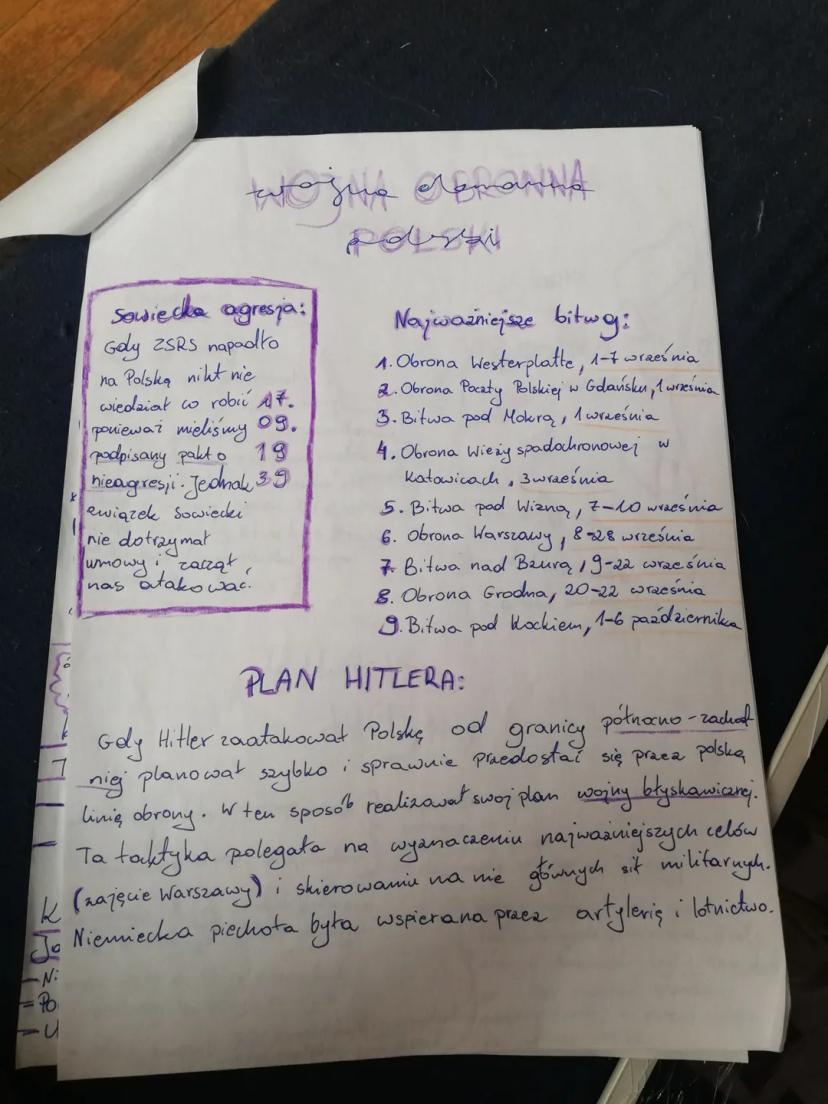 WOJNA OBRONNA
POLSKI
Sowiecka agresja:
Gdy ZSRS napadło
na Polskę nikt nie
wiedział co robić 17.
ponieważ mieliśmy 09.
podpisany pakt o 19
nieagresji. Jednak 39
związek Sowiecki
nie dotrzymał
umowy i zaczął
nas atakować.
Najważniejsze bitwy:
1. Obrona Westerplatte, 1-7 września
2. Obrona Poczty Polskiej w Gdańsku, 1 września
3. Bitwa pod Mokrą, 1 września
4. Obrona Wieży spadochronowej w
Katowicach, 3 września
5. Bitwa pod Wizną, 7-10 września
6. Obrona Warszawy, 8-28 września
7. Bitwa nad Bzurą, 9-22 września
8. Obrona Grodna, 20-22 września
9. Bitwa pod Kockiem, 1-6 października
PLAN HITLERA:
Gdy Hitler zaatakował Polskę od granicy północno-zachod
niej planował szybko i sprawnie przedostać się przez polską
linię obrony. W ten sposób realizawał swój plan wojny błyskawicznej.
Ta taktyka polegała na wyznaczeniu najważniejszych celów
(zajęcie Warszawy) i skierowaniu na nie głównych sił militarnych.
Niemiecka piechota była wspierana przez artylerię i lotnictwo.
K
Jo
- Ni
= Po
- U